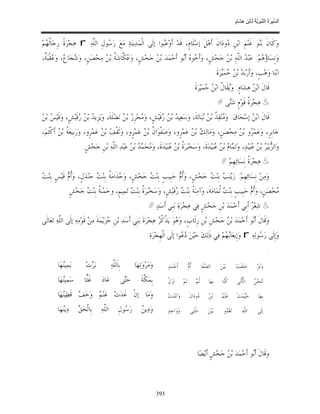 السيرة النبوية لابن هشام
وَكَانَ بَنُو غَنْمِ ابْنِ دُودَانَ أَهْلَ إسْلَامٍ، قَدْ أَوْعَبُوا إلَى الْمَدِينَةِ مَعَ رَسُولِ اللَّهِ r هِجْرَةً رِجَالُهُمْ
وَنِسَاؤُهُمْ: عَبْدُ اللَّهِ بْنُ جَحْشٍ، وَأَخُوهُ أَبُو أَحْمَدَ بْنُ جَحْشٍ، وَعُكَّاشَةُ بْنُ مِحْصَنٍ، وَشُجَاعٌ، وَعُقْبَةُ،
ابْنَا وَهْبٍ، وَأَرْبَدُ بْنُ حُمَيِّرَةَ.
قَالَ ابْنُ هِشَامٍ: وَيُقَالُ ابْنُ حُمَيْرَةَ
@ هِجْرَةُ قَوْمٍ شَتَّى #
قَالَ ابْنُ إسْحَاقَ: وَمُنْقِذُ بْنُ نُبَاتَةَ، وَسَعِيدُ بْنُ رُقَيْشٍ، وَمُحْرِزُ بْنُ نَضْلَةَ، وَيَزِيدُ بْنُ رُقَيْشٍ، وَقَيْسُ بْنُ
جَابِرٍ، وَعَمْرُو بْنُ مِحْصَنٍ، وَمَالِكُ بْنُ عَمْرٍو، وَصَفْوَانُ بْنُ عَمْرٍو، وَثَقْفُ بْنُ عَمْرٍو، وَرَبِيعَةُ بْنُ أَكْثَمَ،
وَالزُّبَيْرُ بْنُ عُبَيْدَةَ، وَتَمَّامُ بْنُ عُبَيْدَةَ، وَسَخْبَرَةُ بْنُ عُبَيْدَةَ، وَمُحَمَّدُ بْنُ عَبْدِ اللَّهِ بْنِ جَحْشٍ
@ هِجْرَةُ نِسَائِهِمْ #
وَمِنْ نِسَائِهِمْ: زَيْنَبُ بِنْتُ جَحْشٍ، وَأُمُّ حَبِيبٍ بِنْتُ جَحْشٍ، وَجُذَامَةُ بِنْتُ جَنْدَلٍ، وَأُمُّ قَيْسٍ بِنْتُ
مُحْصَنٍ، وَأُمُّ حَبِيبٍ بِنْتُ ثُمَامَةَ، وَآمِنَةُ بِنْتُ رُقَيْشٍ، وَسَخْبَرَةُ بِنْتُ تَمِيمٍ، وَحَمْنَةُ بِنْتُ جَحْشٍ
@ شِعْرُ أَبِي أَحْمَدَ بْنِ جَحْشٍ فِي هِجْرَةِ بَنِي أَسَدٍ #
وَقَالَ أَبُو أَحْمَدَ بْنُ جَحْشِ بْنِ رِئَابٍ، وَهُوَ يَذْكُرُ هِجْرَةَ بَنِي أَسَدِ بْنِ خُزَيْمَةَ مِنْ قَوْمِهِ إلَى اللَّهِ تَعَالَى
وَإِلَى رَسُولِهِ r وَإِيعَابَهُمْ فِي ذَلِكَ حِينَ دُعُوا إلَى الْهِجْرَةِ:
وَلَوْ حَلَفَتْ بَيْنَ الصَّفَا أُمُّ أَحْمَدَ وَمَرْوَتِهَا بِاَللَّهِ بَرَّتْ يَمِينُهَا
لَنَحْنُ الْأُلَى كُنَّا بِهَا ثُمَّ لَمْ نَزَلْ بِمَكَّةَ حَتَّى عَادَ غَثًّا سَمِينُهَا
بِهَا خَيَّمَتْ غَنْمُ بْنُ دُودَانَ وَابْتَنَتْ وَمَا إنْ غَدَتْ غَنْمٌ وَخَفَّ قَطِينُهَا
إلَى اللَّهِ تَغْدُو بَيْنَ مَثْنَى وَوَاحِدٍ وَدِينُ رَسُولِ اللَّهِ بِالْحَقِّ دِينُهَا
وَقَالَ أَبُو أَحْمَدَ بْنُ جَحْشٍ أَيْضًا
393